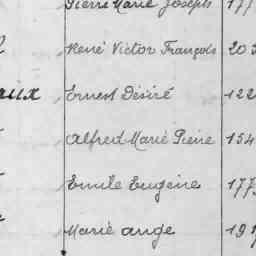 Pierre Marie Joseph 177
René Victor François 203
aux Ernest Désiré 122
Alfred Marie Pierre 154
Emile Eugène 177
Marie ange 19